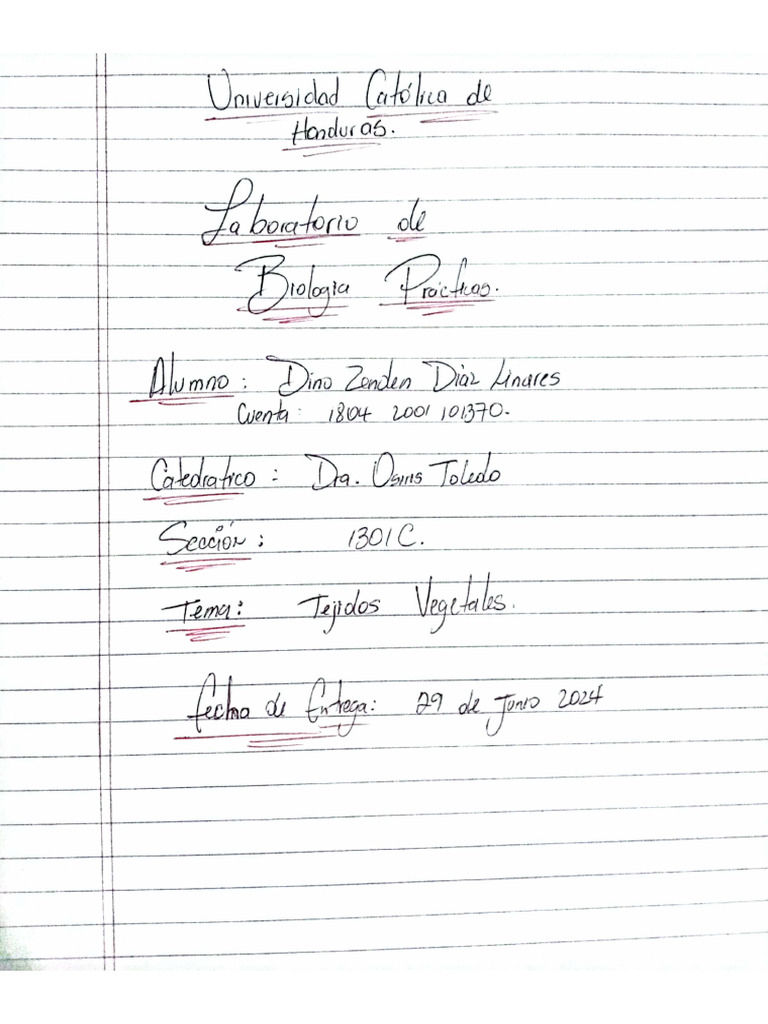 Universidad Católica de
Honduras.
Laboratorio de
Biología Prácticas.
Alumno: Dino Zenden Díaz Linares
Cuenta: 1804 2001 101370.
Catedrático: Dra. Osiris Toledo
Sección: 1301 C.
Tema: Tejidos Vegetales.
Fecha de Entrega: 29 de Junio 2024